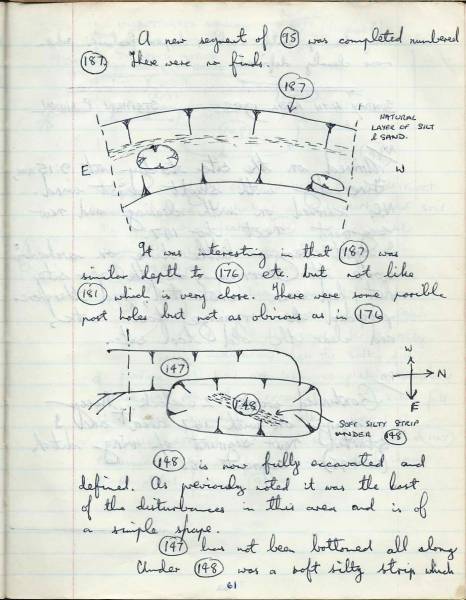 A new segment of 95 was completed numbered
187. There were no finds.
187
NATURAL
LAYER OF SILT
& SAND.
E
W
It was interesting in that 187 was
similar depth to 176 etc. but not like
181 which is very close. There were some possible
post holes but not as obvious as in 176
147
148
W
N
E
SOFT SILTY STRIP
UNDER 148
148 is now fully excavated and
defined. As previously noted it was the last
of the disturbances in this area and is of
a simple shape.
147 has not been bottomed all along
Under 148 was a soft silty strip which
61